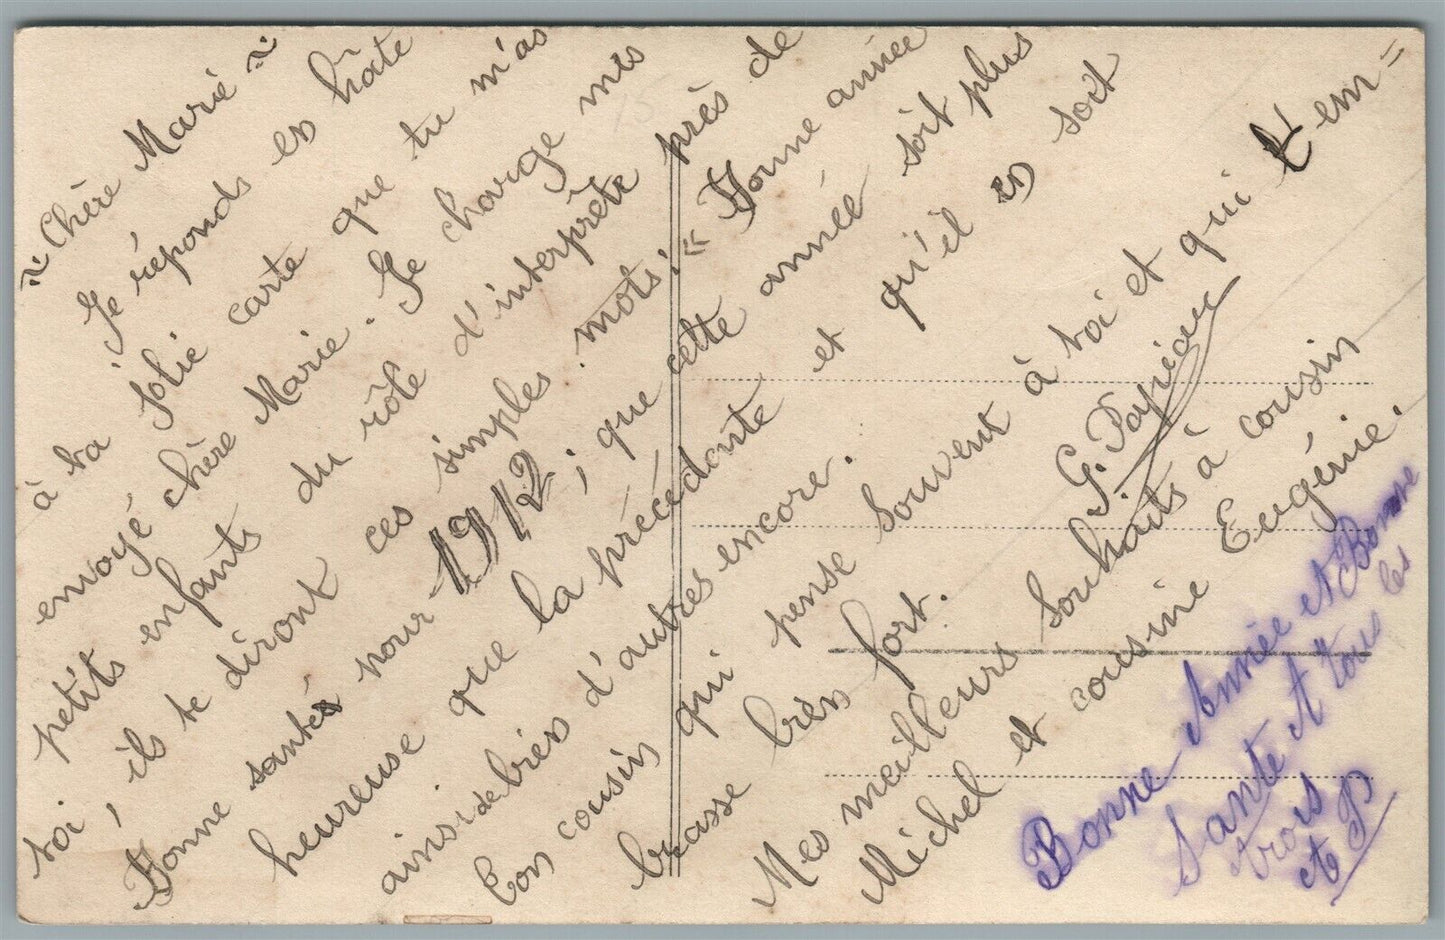 ~ Chère Marie ~
Je réponds en hâte
à ta jolie carte que tu m'as
envoyé chère Marie. Je charge mes
petits enfants du rôle d'interprète près de
toi, ils te diront ces simples mots: " Bonne année
Bonne santé pour 1912 ; que cette année soit plus
heureuse que la précédante et qu'il en soit
ainsi de bien d'autres encore.
Ton cousin qui pense souvent à toi et qui t'em=
brasse bien fort.
G. Papieau
Mes meilleurs souhaits à cousin
Michel et cousine Eugénie.
Bonne Année et Bonne
Santé A tous les
trois
et P